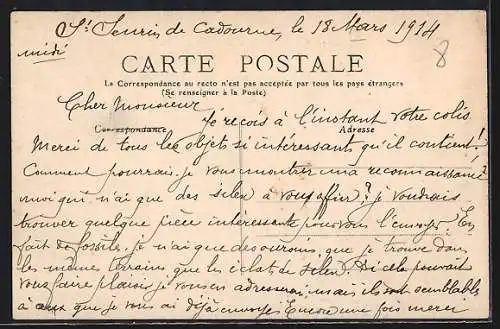 St Seurin de Cadourne, le 18 Mars 1914
midi
8
CARTE POSTALE
La Correspondance au recto n'est pas acceptée par tous les pays étrangers
(Se renseigner à la Poste)
Cher Monsieur
Je reçois à l'instant votre colis.
Correspondance
Adresse
Merci de tous les objets si intéressants qu'il contient!
Comment pourrais-je vous montrer ma reconnaissance?
moi qui n'ai que des silex à vous offrir? je voudrais
trouver quelque pièce intéressante pour vous l'envoyer. En
fait de fossile, je n'ai que des oursins, que je trouve dans
les mêmes terrains que les éclats de silex. Si cela pouvait
vous faire plaisir je vous en adresserai mais ils sont semblables
à ceux que je vous ai déjà envoyés Encore une fois merci